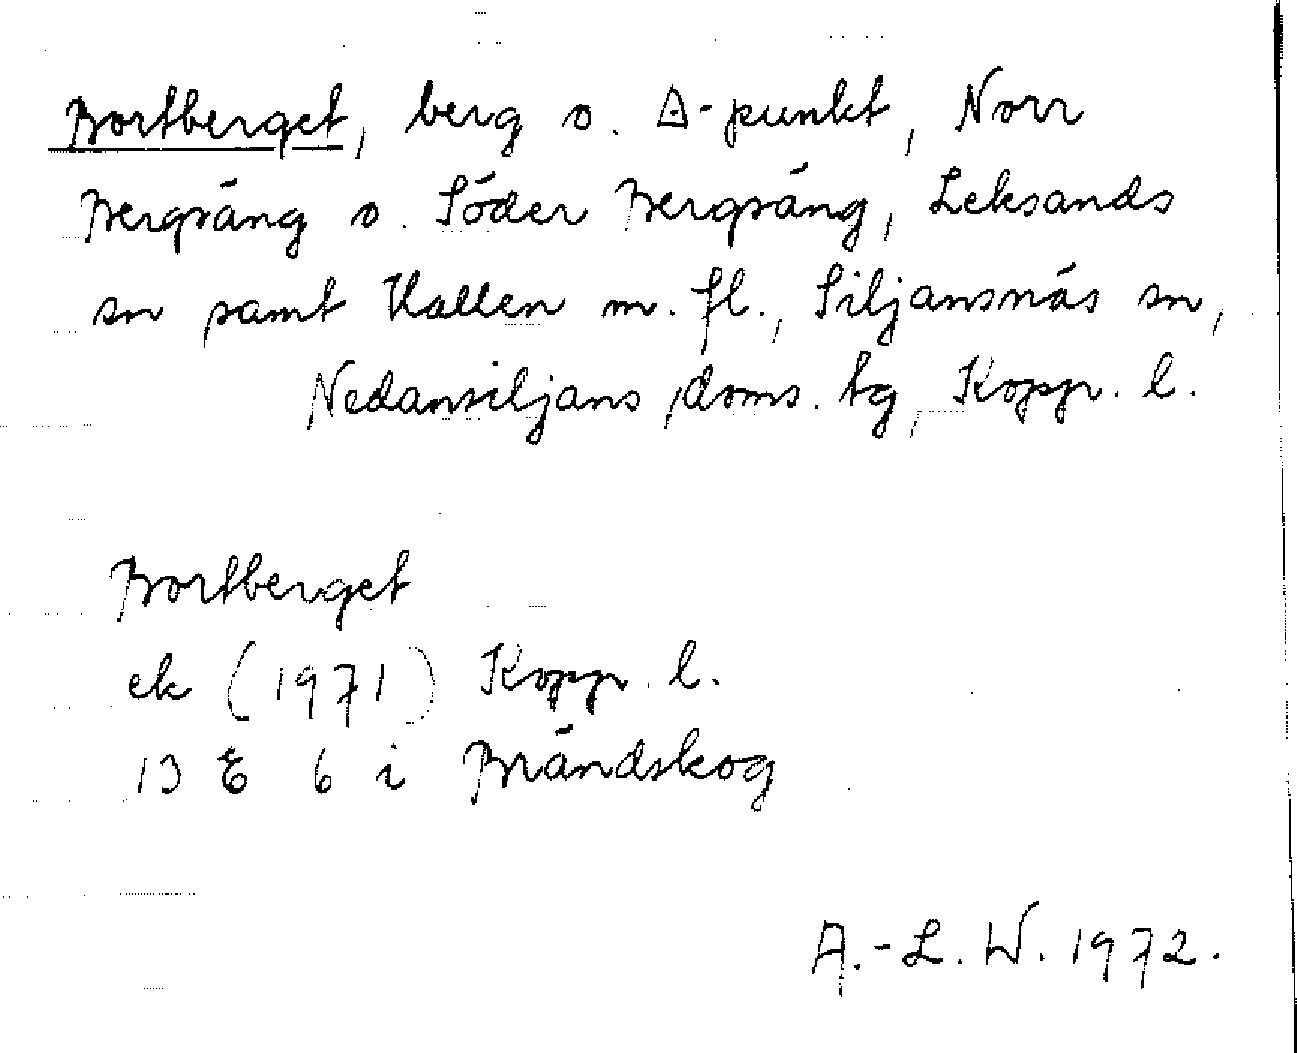 Bortberget, berg o. △-punkt, Norr
Bergsäng o. Söder Bergsäng, Leksands
sn samt Hallen m. fl., Siljansnäs sn,
Nedansiljans doms. tg, Kopp. l.
Bortberget
ek (1971) Kopp. l.
13 E 6 i Brändskog
A.-L. W. 1972.